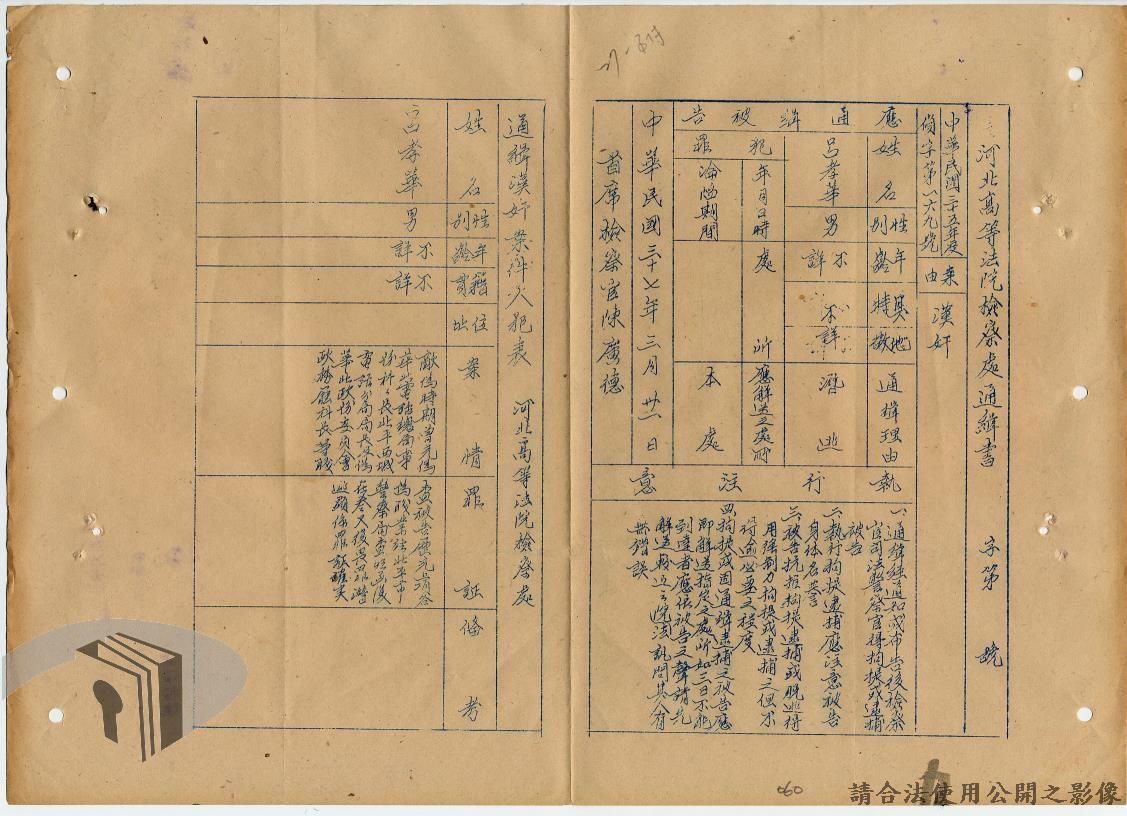 河北高等法院檢察處通緝書 字第 號
中華民國三十五年度
偵字第一六九號
案由
漢奸
應通緝被告
姓名
性別
年齡
其他特徵
通緝理由
呂孝華
男
不詳
不詳
潛逃
犯罪
年月日時
處所
應解送之處所
淪陷期間
本處
中華民國三十七年三月廿一日
首席檢察官陳廣德
執行注意
一、通緝經通知或布告後檢察
官司法警察官得拘提或逮捕
被告
二、執行拘提逮捕應注意被告
身体名譽
三、被告抗拒拘提逮捕或脫逃得
用強制力拘提或逮捕之但不
得逾必要之程度
四、拘提或因通緝逮捕之被告應
即解送指定之處所如三日不能
到達者應依被告之聲請先
解送較近之法院訊問其人有
無錯誤
通緝漢奸案件人犯表 河北高等法院檢察處
姓名
性別
年齡
籍貫
住址
案情
罪証
備考
呂孝華
男
不詳
不詳
敵偽時期曾充偽
華北電話總局事
務科科長北平西城
電話分局局長及偽
華北政務委員會
政務廳科長等職
查被告歷充上開各
偽職業經北平市
警察局查明函復
在卷又復畏罪潛
逃顯係罪証確實
060
請合法使用公開之影像